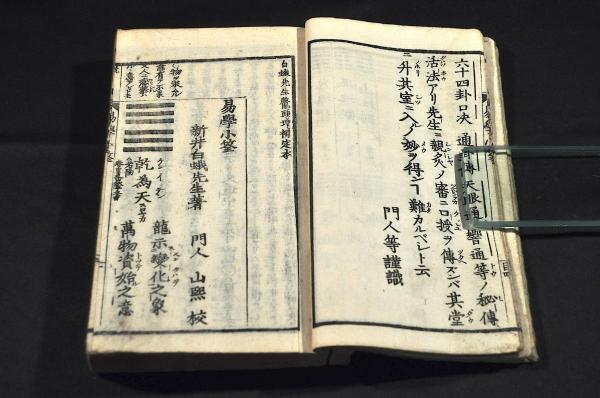 六十四卦口决
通等ノ秘傳
活法アリ先生ニ親炙ノ審ニ口授ヲ傳ズンバ其堂
ニ升其室ニ入ノ妙ヲ得ヿ難カルベレト云
門人等謹識
白蛾先生鼇頭増補定本
易學小筌
新井白蛾先生著 門人 山熈校
乾為天
龍示變化之象
萬物資始之意
易學小筌